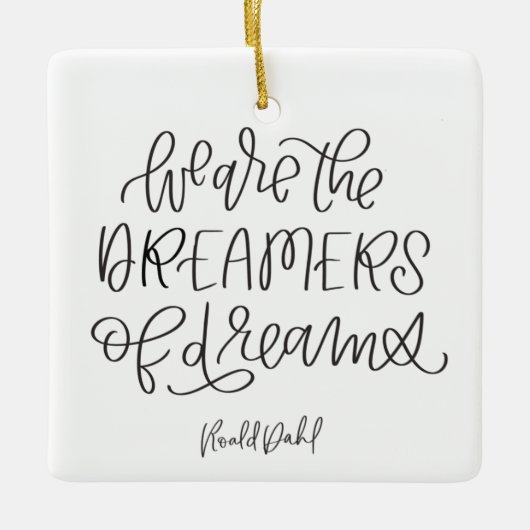 We are the
DREAMERS
of dreams
Roald Dahl